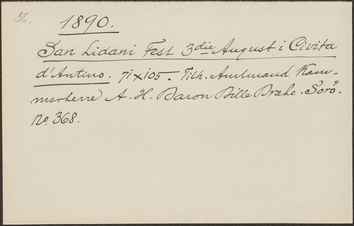 1890.
San Lidani Fest 3die August i Civita
d'Antino. 71x105. Tilh. Amtmand Kam-
merherre A. H. Baron Bille Brahe. Sorø.
No 368.